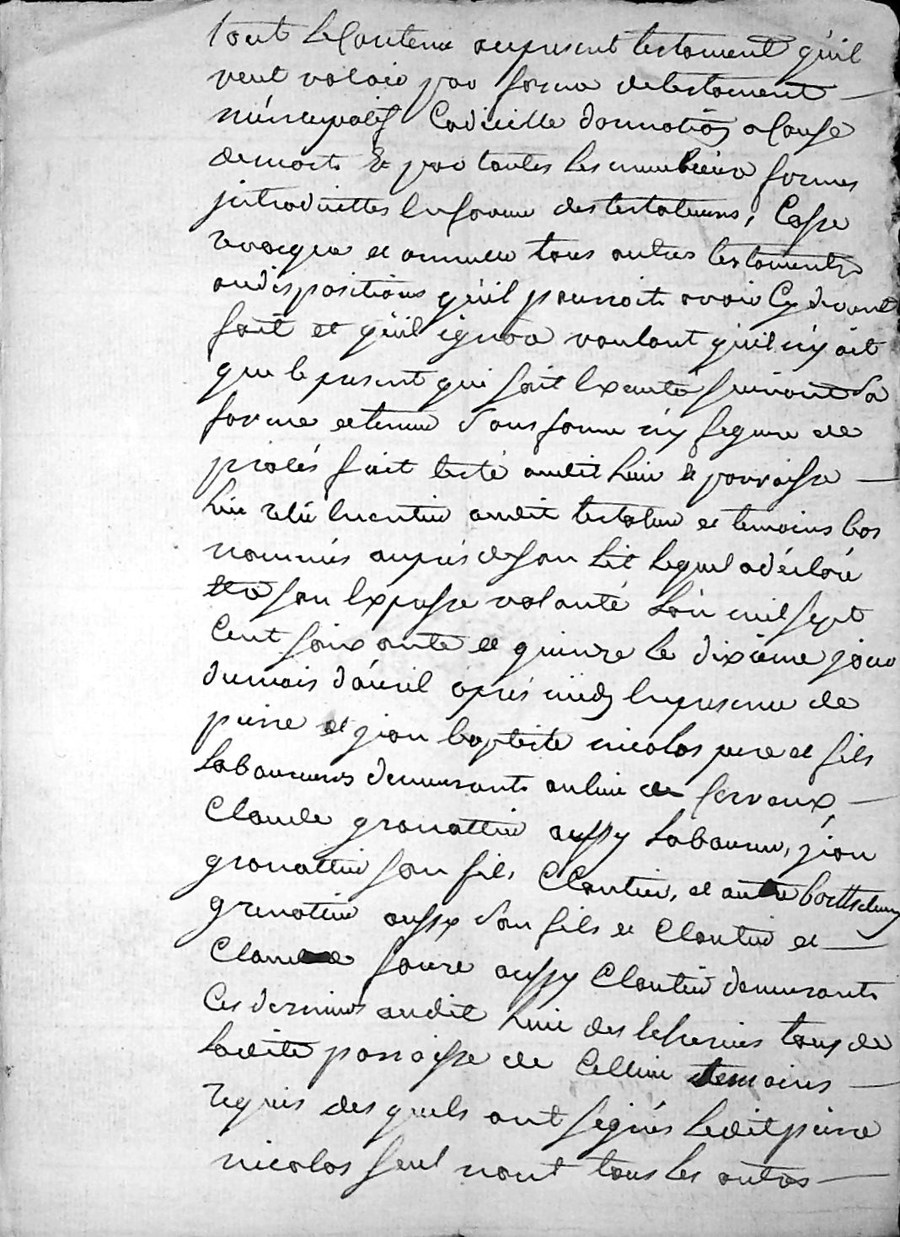 tout le contenu au present testament qu'il
veut valoir par forme de testament
nuncupatif Codicille donnation a cause
de mort & par toutes les meilleures formes
introduittes en faveur des testateurs, Casse
revoque et annulle tous autres testaments
ou dispositions qu'il pourroit avoir Cy devant
fait et qu'il ignore voulant qu'il n'y ait
que le present qui soit Executé suivant sa
forme et teneur sans forme n'y figure de
procés fait leté audit lieu & parroisse
lieu relu en entier audit testateur et temoins bas
nommés auprés de son lit lequel a déclaré
son Expresse volanté l'an mil sept
Cent soixante et quinze le dixieme jour
du mois d'avril aprés midy En presence de
pierre et jean baptiste nicolas pere et fils
laboureurs demeurants au lieu de servaux
Claude gronattier aussy laboureur, jean
gronattier son fils Cloutier, et autre bartholemy
grenatier aussy son fils et Cloutier et
Claude faure aussy Cloutier demeurants
Ces derniers audit lieu des tous de
ladite parroisse de Cellieu temoins
requis des quels ont signés ledit pierre
nicolas seul nont tous les autres